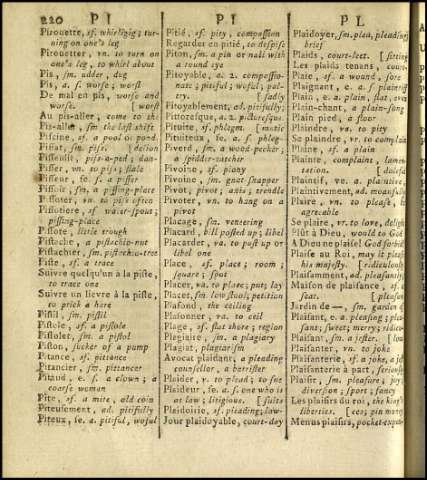 220 P I P I P L
Pirouette, sf. whirligig; tur-
ning on one's leg
Pirouetter, vn. to turn on
one's leg, to whirl about
Pis, sm. adder, dug
Pis, a. f. worse; worst
De mal en pis, worse and
worse. [worst
Au pis-aller, come to the
Pis-aller, sm. the last shift
Piscine, sf. a pool or pond
Pisseuse,
Pisser, vn. to piss; stale
Pisseur, sm. a pisser
Pissoir, sm. a pissing-place
Pissoter, vn. to piss often
Pissotiere, sf. water-spout;
pissing-place
Pissote, little rough
Pistache, a pistachio-nut
Pistachier, sm. pistachio-tree
Piste, sf. a trace
Suivre quelqu'un à la piste,
to trace one
Suivre un lievre à la piste,
to prick a hare
Pistil, sm. pistil
Pistole, sf. a pistole
Pistolet, sm. a pistol
Piston, sucker of a pump
Pitance, sf. pittance
Pitancier, sm. pittancer
Pitaud, e. s. a clown; a
coarse woman
Pite, sf. a mite, old coin
Piteusement, ad. pitifully
Piteux, se. a. pitiful, woful
Pitié, sf. pity, compassion
Regarder en pitié, to despise
Piton, sm. a pin or nail with
a round eye
Pitoyable, a. 2. compassio-
nate; piteful; woful; pal-
try. [sadly
Pitoyablement, ad. pitifully;
Pittoresque, a. 2. picturesque
Pituite, sf. phlegm. [matic
Pituiteux, se. a. f. phleg-
Piverd, sm. a wood-pecker;
a spidder-catcher
Pivoine, sf. piony
Pivoine, sm. gnat-snapper
Pivot, pivot, axis; trendle
Pivoter, vn. to hang on a
pivot
Placage, sm. veneering
Placard, bill posted up; libel
Placarder, va. to post up or
libel one
Place, sf. place; room;
square; spot
Placer, va. to place; put; lay
Placet, sm. low stool; petition
Plafond, the ceiling
Plafonner, va. to ceil
Plage, sf. flat shore; region
Plagiaire, sm. a plagiary
Plagiat, plagiarism
Avocat plaidant, a pleading
counsellor, a barrister
Plaider, v. to plead; to sue
Plaideur, se. a. f. one who is
at law; litigious. [suits
Plaidoirie, sf. pleading; law-
Jour plaidoyable, court-day
Plaidoyer, sm. plea, pleading
brief
Plaids, court-leet. [sitting
Les plaids tenant, court
Plaie, sf. a wound, sore
Plaignant, e. a. f. plaintiff
Plain, e. a. plain, flat, even
Plain-chant, a plain-song
Plain pied, a floor
Plaindre, va. to pity
Se plaindre, vr. to complain
Plaine, sf. a plain
Plainte, complaint, lamen-
tation. [dulefa
Plaintif, ve. a. plaintive,
Plaintivement, ad. mournfully
Plaire, vn. to please, be
agreeable
Se plaire, vr. to love, delight
Plût à Dieu, would to God
A Dieu ne plaise! God forbid
Plaise au Roi, may it please
his majesty. [ridiculously
Plaisamment, ad. pleasantly
Maison de plaisance, sf. a
seat. [pleasure
Jardin de —, sm. garden of
Plaisant, e. a. pleasing; plea-
sant; sweet; merry; ridicu-
Plaisant, sm. a jester. [lous
Plaisanter, vn. to joke
Plaisanterie, sf. a joke, a jest
Plaisanterie à part, seriously
Plaisir, sm. pleasure; joy;
diversion; sport; fancy
Les plaisirs du roi, the king's
liberties. [ces; pin money
Menus plaisirs, pocket-expen-